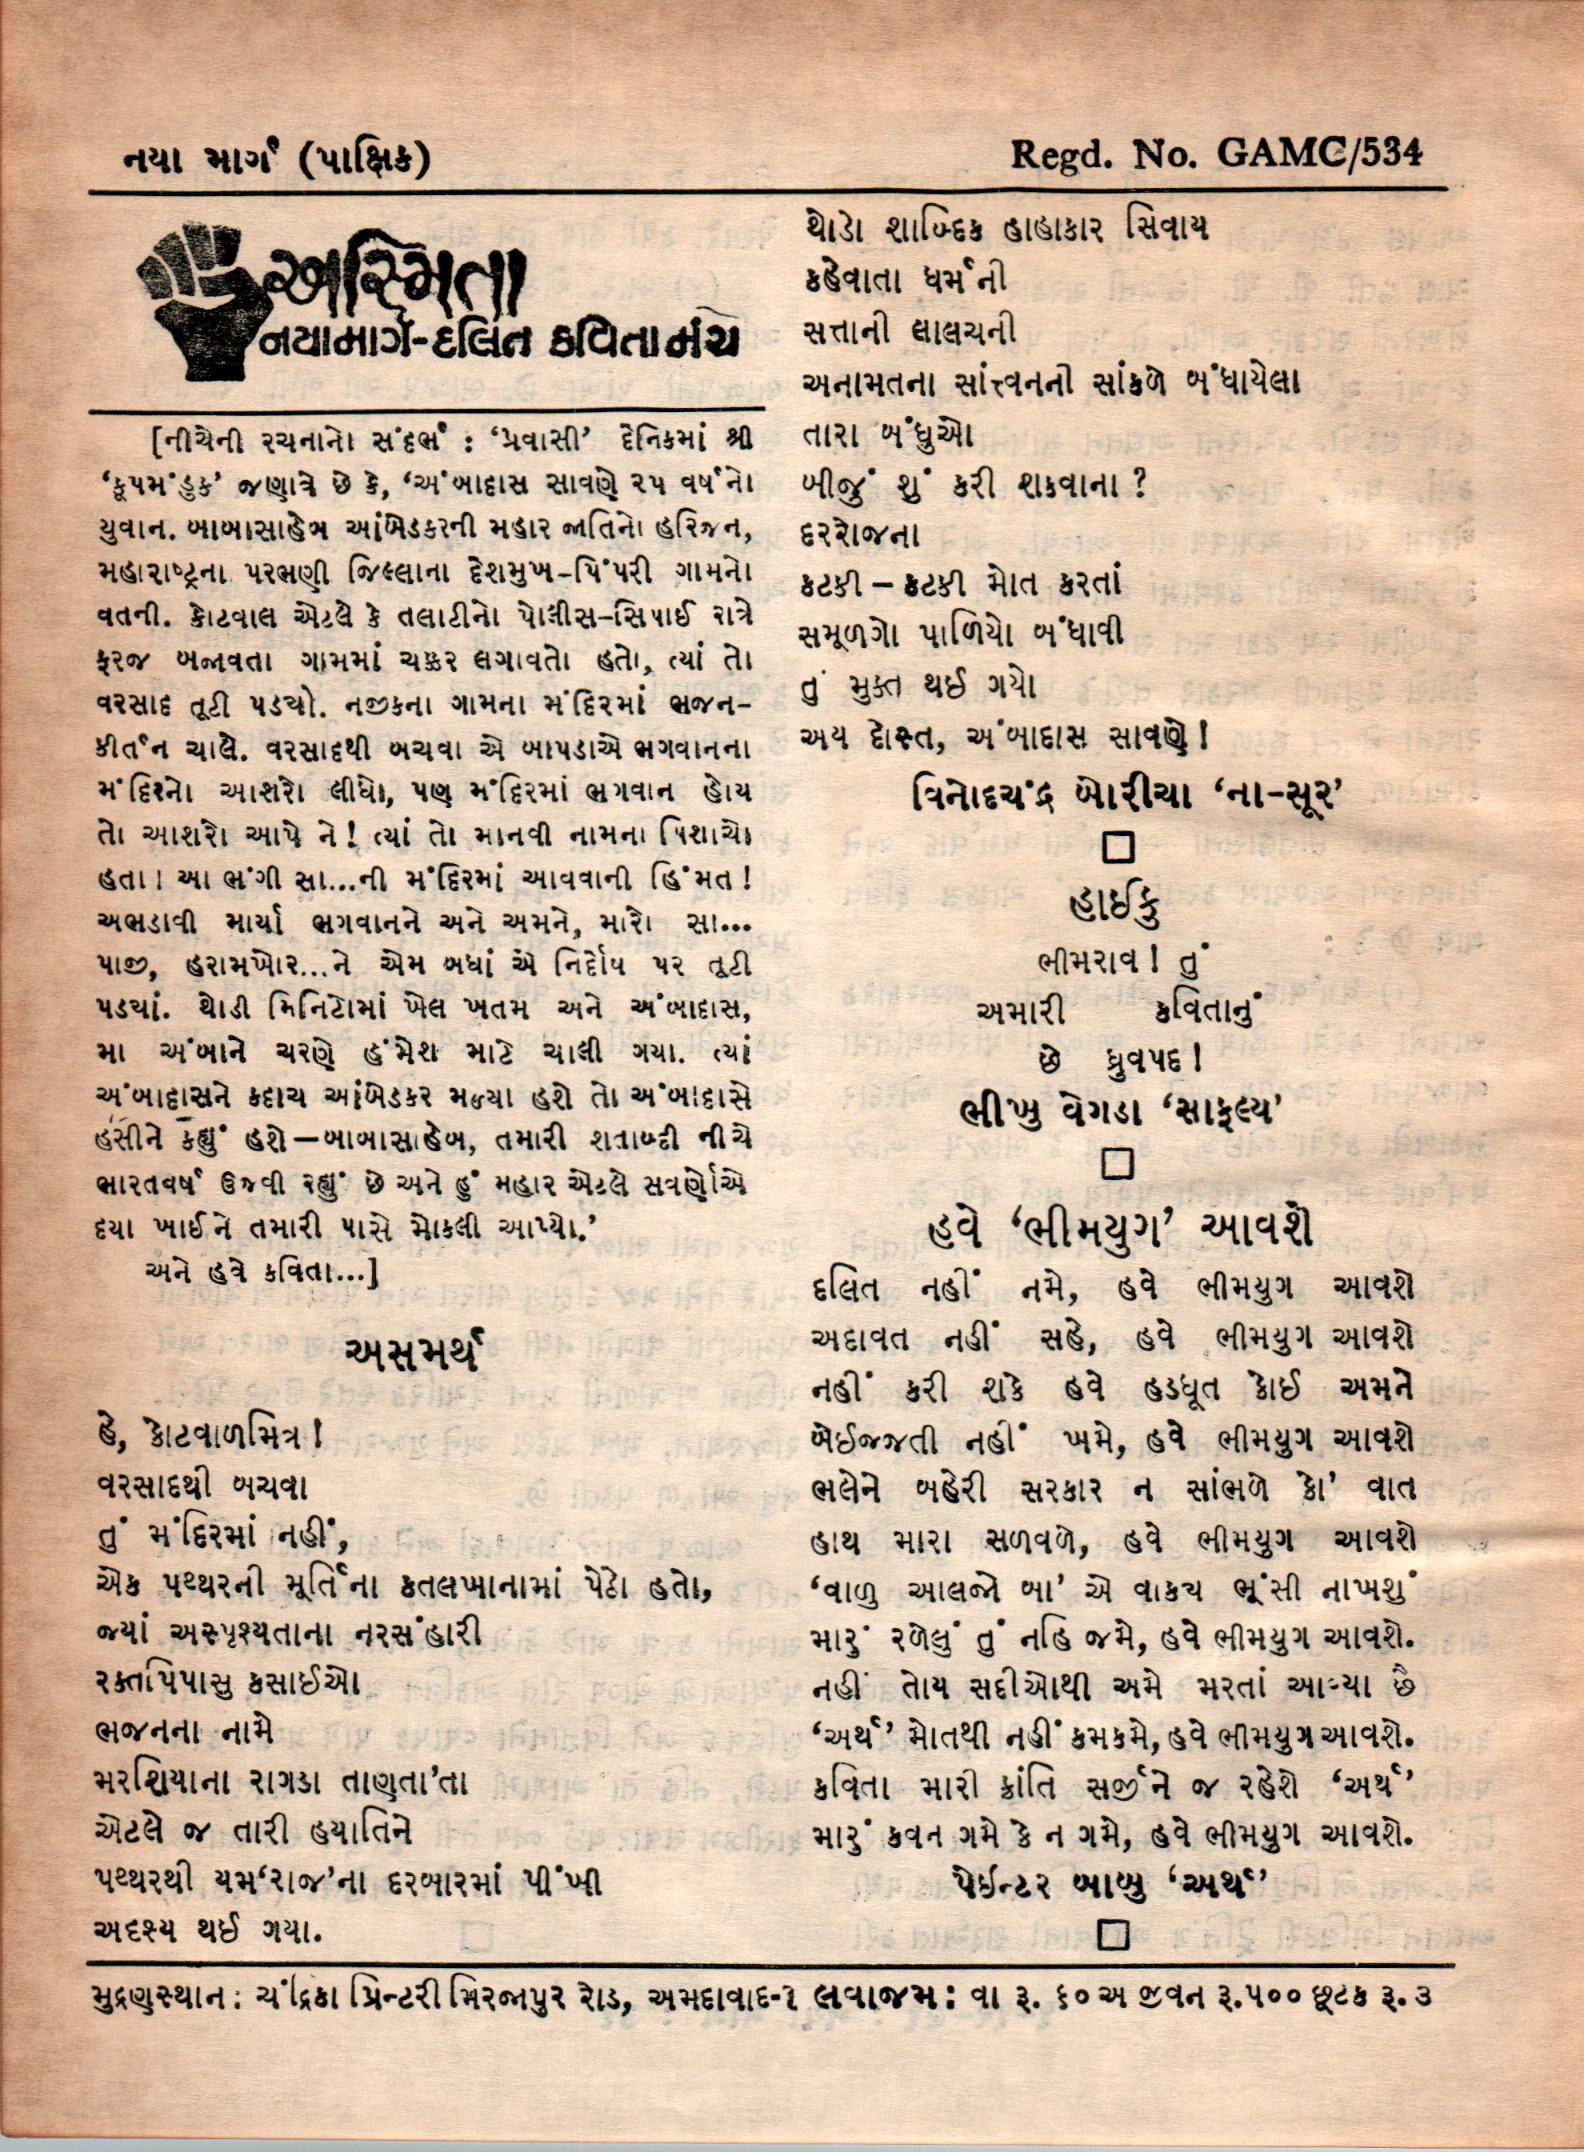 નયા માર્ગ (પાક્ષિક)
Regd. No. GAMC/534
અસ્મિતા
નયામાર્ગ-દલિત કવિતા મંચ
[નીચેની રચનાનો સંદર્ભ : ‘પ્રવાસી’ દૈનિકમાં શ્રી
‘કૂપમંડુક’ જણાવે છે કે, ‘અંબાદાસ સાવણે ૨૫ વર્ષનો
યુવાન. બાબાસાહેબ આંબેડકરની મહાર જાતિનો હરિજન,
મહારાષ્ટ્રના પરભણી જિલ્લાના દેશમુખ-પિંપરી ગામનો
વતની. કોટવાલ એટલે કે તલાટીનો પોલીસ-સિપાઈ રાત્રે
ફરજ બજાવતા ગામમાં ચક્કર લગાવતો હતો, ત્યાં તો
વરસાદ તૂટી પડ્યો. નજીકના ગામના મંદિરમાં ભજન-
કીર્તન ચાલે. વરસાદથી બચવા એ બાપડાએ ભગવાનના
મંદિરનો આશરો લીધો, પણ મંદિરમાં ભગવાન હોય
તો આશરો આપે ને! ત્યાં તો માનવી નામના પિશાચો
હતા। આ ભંગી સા...ની મંદિરમાં આવવાની હિંમત!
અભડાવી માર્યા ભગવાનને અને અમને, મારો સા...
પાજી, હરામખોર...ને એમ બધાં એ નિર્દોષ પર તૂટી
પડ્યાં. થોડી મિનિટોમાં ખેલ ખતમ અને અંબાદાસ,
મા અંબાને ચરણે હંમેશ માટે ચાલી ગયા. ત્યાં
અંબાદાસને કદાચ આંબેડકર મળ્યા હશે તો અંબાદાસે
હસીને કહ્યું હશે—બાબાસાહેબ, તમારી શતાબ્દી નીચે
ભારતવર્ષ ઉજવી રહ્યું છે અને હું મહાર એટલે સવર્ણોએ
દયા ખાઈને તમારી પાસે મોકલી આપ્યો.’
અને હવે કવિતા...]
અસમર્થ
હે, કોટવાળમિત્ર!
વરસાદથી બચવા
તું મંદિરમાં નહીં,
એક પથ્થરની મૂર્તિના કતલખાનામાં પેઠો હતો,
જ્યાં અસ્પૃશ્યતાના નરસંહારી
રક્તપિપાસુ કસાઈઓ
ભજનના નામે
મરશિયાના રાગડા તાણતા’તા
એટલે જ તારી હયાતિને
પથ્થરથી યમ‘રાજ’ના દરબારમાં પીંખી
અદૃશ્ય થઈ ગયા.
થોડો શાબ્દિક હાહાકાર સિવાય
કહેવાતા ધર્મની
સત્તાની લાલચની
અનામતના સાંત્વનની સાંકળે બંધાયેલા
તારા બંધુઓ
બીજું શું કરી શકવાના?
દરરોજના
કટકી – કટકી મોત કરતાં
સમૂળગો પાળિયો બંધાવી
તું મુક્ત થઈ ગયો
અય દોસ્ત, અંબાદાસ સાવણે!
વિનોદચંદ્ર બોરીચા ‘ના-સૂર’
હાઈકુ
ભીમરાવ! તું
અમારી કવિતાનું
છે ધ્રુવપદ!
ભીખુ વેગડા ‘સાફલ્ય’
હવે ‘ભીમયુગ’ આવશે
દલિત નહીં નમે, હવે ભીમયુગ આવશે
અદાવત નહીં સહે, હવે ભીમયુગ આવશે
નહીં કરી શકે હવે હડધૂત કોઈ અમને
બેઈજ્જતી નહીં ખમે, હવે ભીમયુગ આવશે
ભલેને બહેરી સરકાર ન સાંભળે કો’ વાત
હાથ મારા સળવળે, હવે ભીમયુગ આવશે
‘વાળુ આલજો બા’ એ વાક્ય ભૂંસી નાખશું
મારું રળેલું તું નહિ જમે, હવે ભીમયુગ આવશે.
નહીં તોય સદીઓથી અમે મરતાં આવ્યા છૈ
‘અર્થ’ મોતથી નહીં કમકમે, હવે ભીમયુગ આવશે.
કવિતા મારી ક્રાંતિ સર્જીને જ રહેશે ‘અર્થ’
મારું કવન ગમે કે ન ગમે, હવે ભીમયુગ આવશે.
પેઈન્ટર બાબુ ‘અર્થ’
મુદ્રણુસ્થાન: ચંદ્રિકા પ્રિન્ટરી મિરજાપુર રોડ, અમદાવાદ-૧ લવાજમ: વા રૂ. ૬૦ અ જીવન રૂ.૫૦૦ છૂટક રૂ. ૩